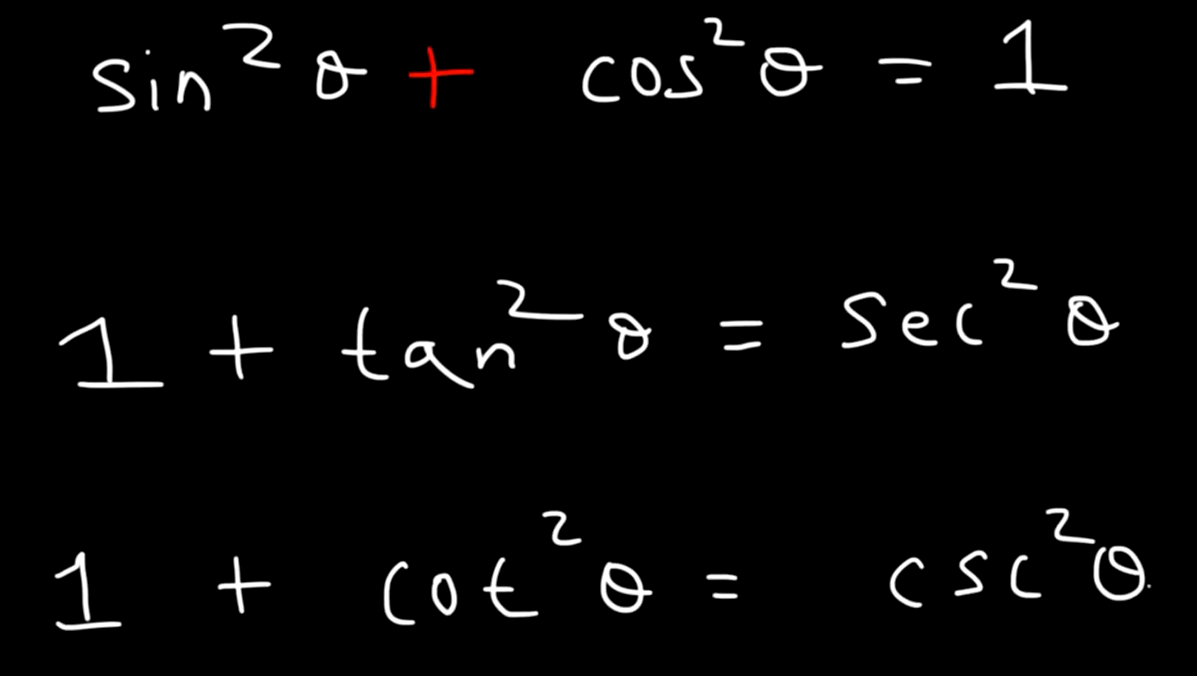 sin²θ + cos²θ = 1
1 + tan²θ = sec²θ
1 + cot²θ = csc²θ